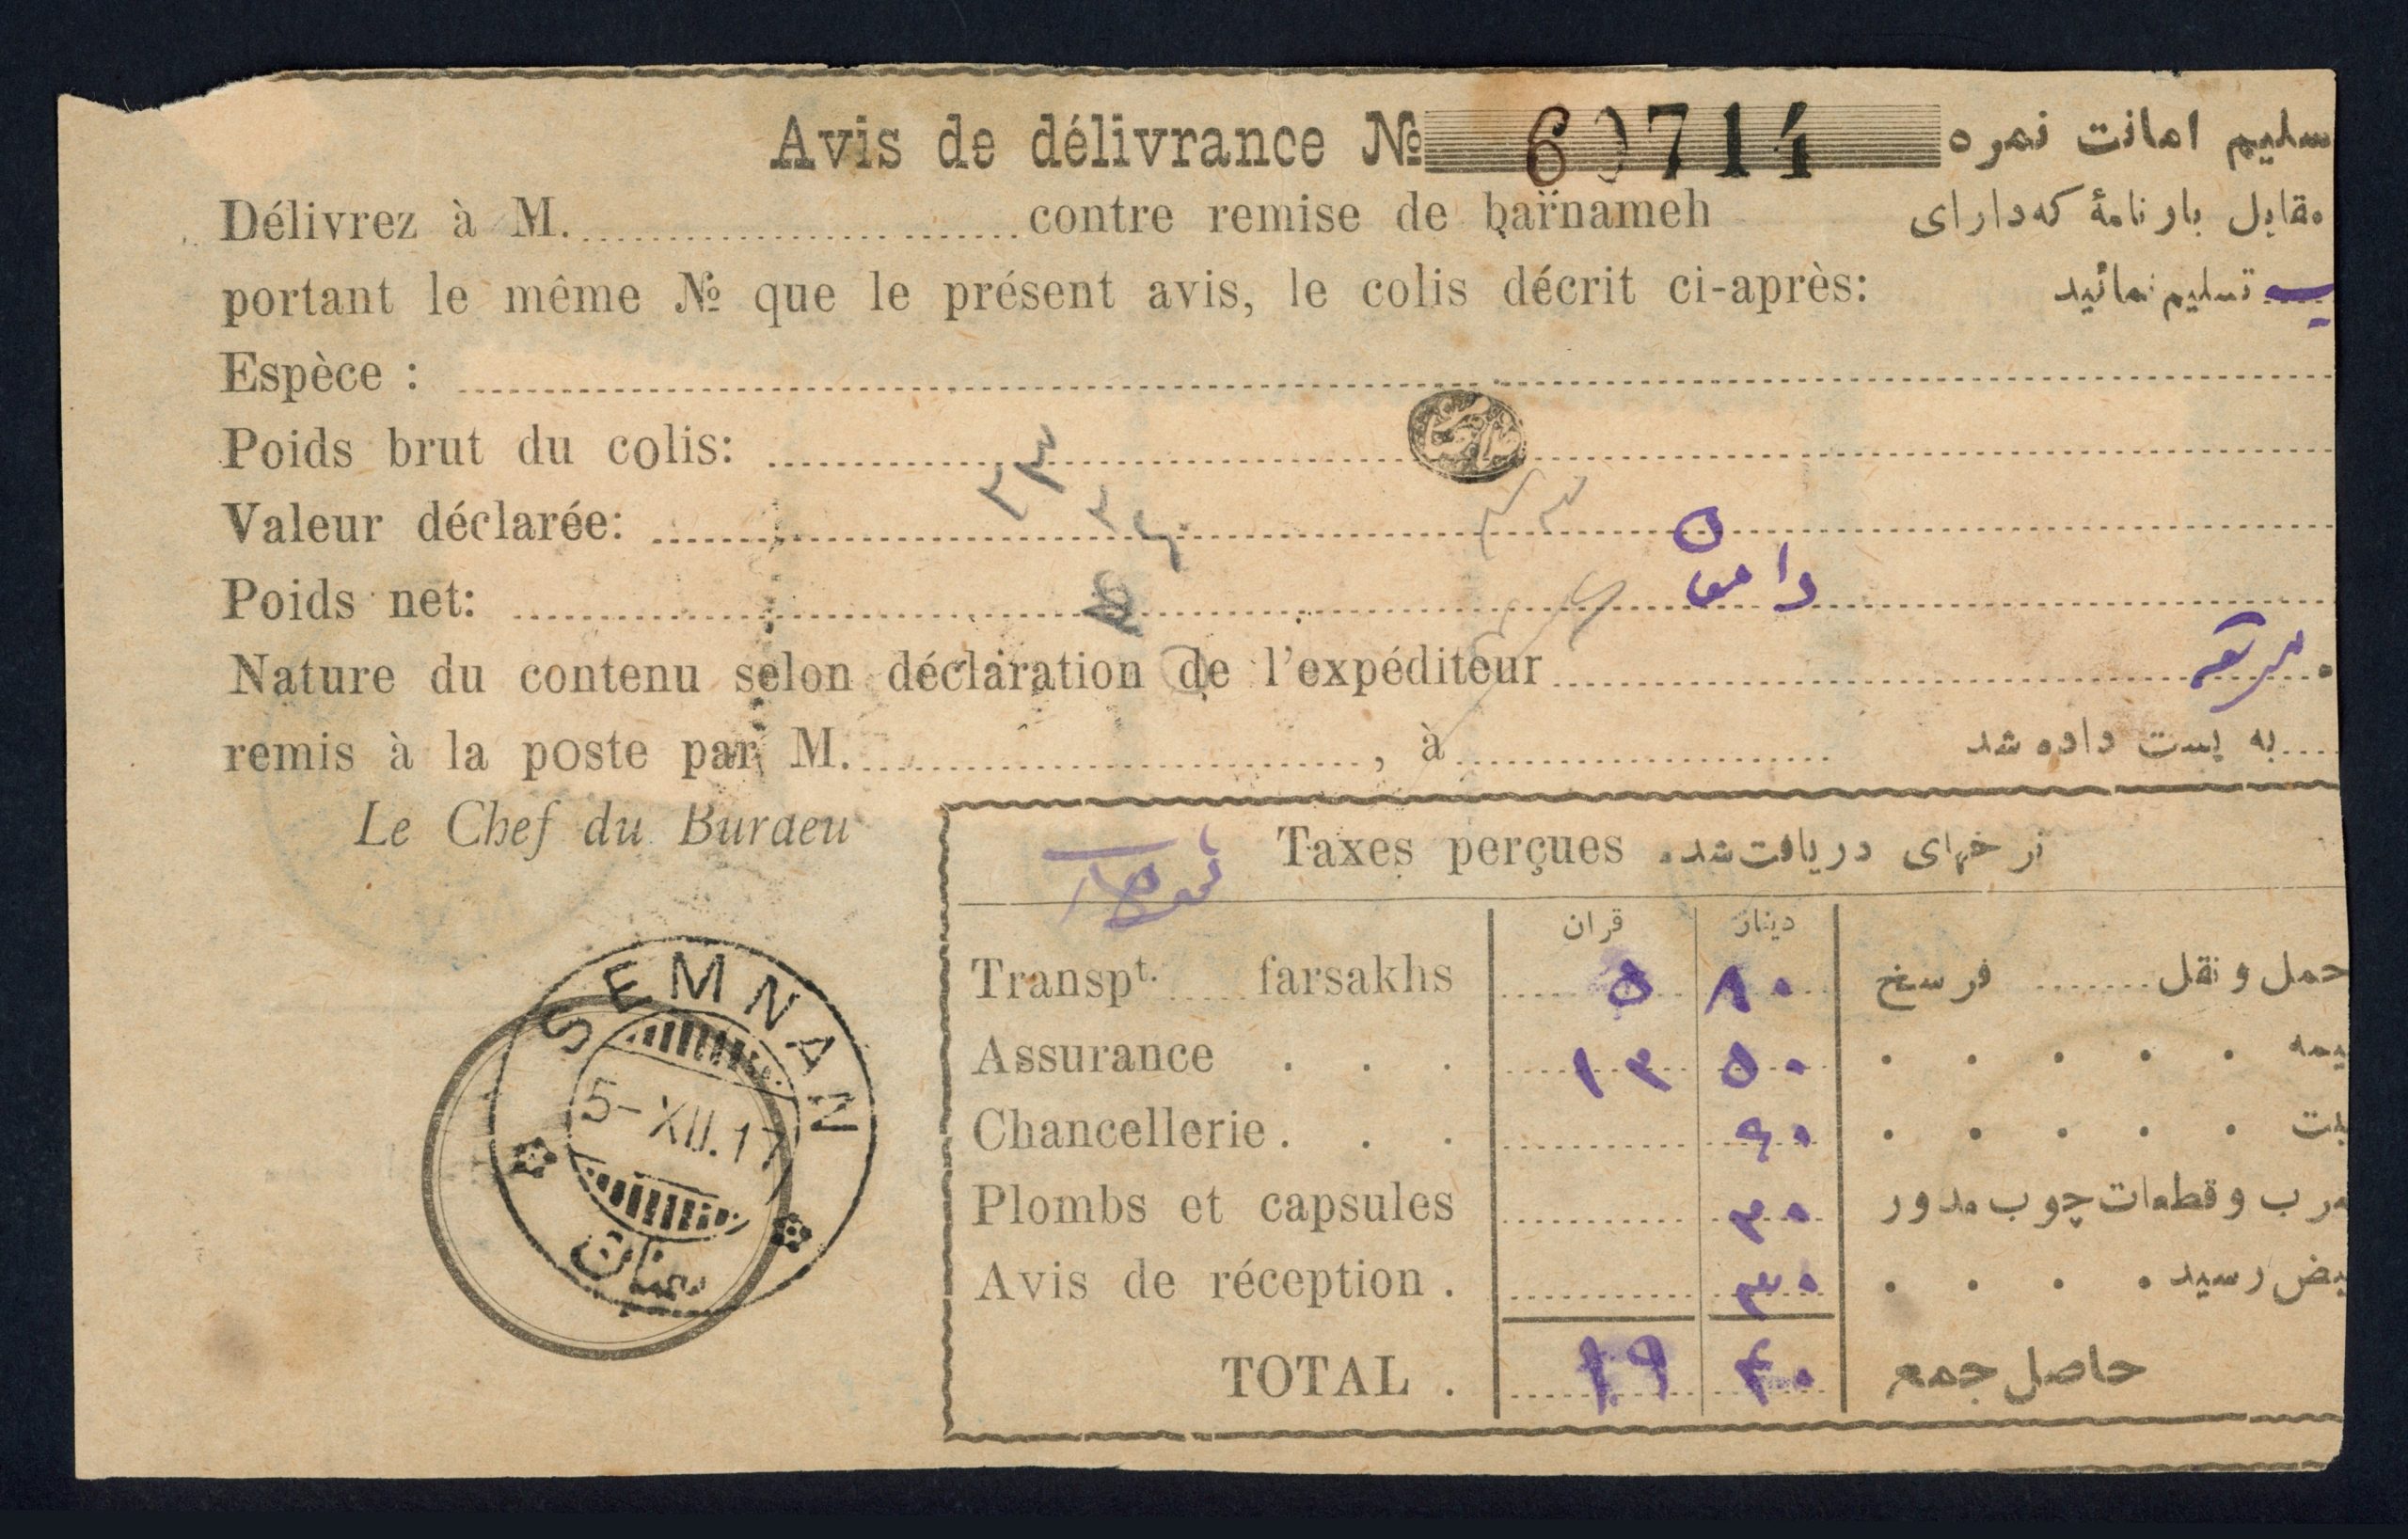 Avis de délivrance № 60714 سلیم امانت نمره
Délivrez à M. contre remise de barnameh مقابل بار نامهٔ که دارای
portant le même № que le présent avis, le colis décrit ci-après: تسلیم نمائید
Espèce :
Poids brut du colis:
۲۳
Valeur déclarée:
Poids net:
Nature du contenu selon déclaration de l'expéditeur
remis à la poste par M. , à به پست داده شد
Le Chef du Buraeu
Taxes perçues نرخهای دریافت شده
قران دینار
Transpt. farsakhs ۵ ۸۰ حمل و نقل فرسخ
Assurance . . . ۱۲ ۵۰ یمه
Chancellerie . . . ۲۰ بت
Plombs et capsules ۳۰ رب و قطعات چوب مدور
Avis de réception . ۳۰ بض رسید
TOTAL . ۱۹ ۴۰ حاصل جمع
SEMNAN
5-XII.17
سمنان